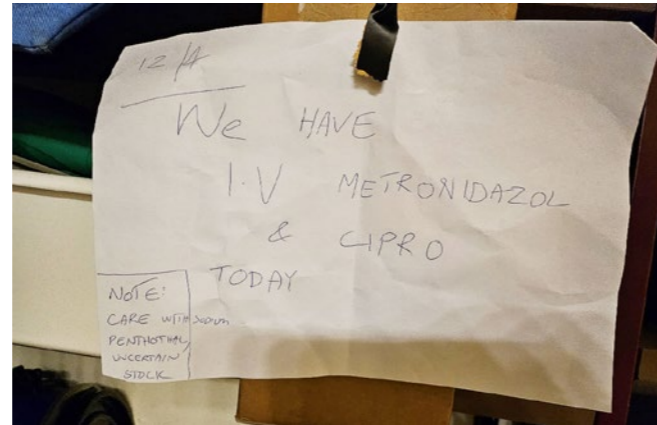 12/4
We HAVE
I.V METRONIDAZOL
& CIPRO
TODAY
NOTE:
CARE WITH SODIUM
PENTHOTHAL
UNCERTAIN
STOCK